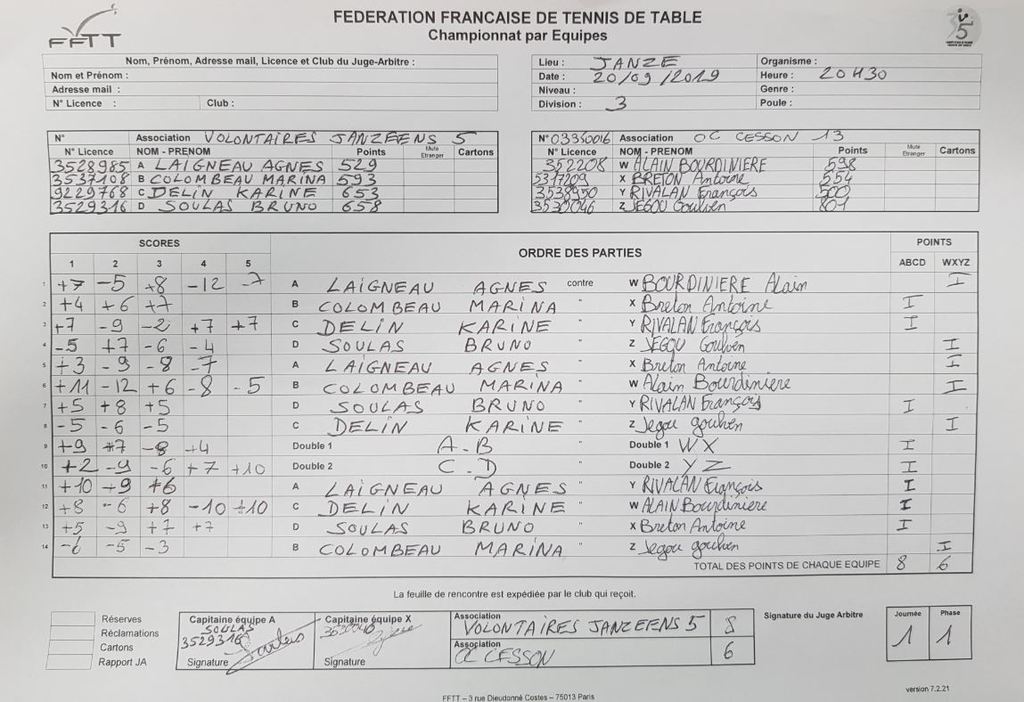 FFTT
FEDERATION FRANCAISE DE TENNIS DE TABLE
Championnat par Equipes
Nom, Prénom, Adresse mail, Licence et Club du Juge-Arbitre :
Nom et Prénom :
Adresse mail :
N° Licence : Club :
Lieu : JANZE Organisme :
Date : 20/09/2019 Heure : 20H30
Niveau : Genre :
Division : 3 Poule :
N° Association VOLONTAIRES JANZEENS 5
N° Licence NOM - PRENOM Points Muté Etranger Cartons
3528985 A LAIGNEAU AGNES 529
3537108 B COLOMBEAU MARINA 593
9229768 C DELIN KARINE 653
3529316 D SOULAS BRUNO 658
N° 03350016 Association OC CESSON 13
N° Licence NOM - PRENOM Points Muté Etranger Cartons
352208 W ALAIN BOURDINIERE 598
5317209 X BRETON Antoine 554
3538950 Y RIVALAN François 500
3530046 Z JEGOU Goulven 801
SCORES ORDRE DES PARTIES POINTS
1 2 3 4 5 ABCD WXYZ
1 +7 -5 +8 -12 -7 A LAIGNEAU AGNES contre W BOURDINIERE Alain I
2 +4 +6 +7 B COLOMBEAU MARINA " X Breton Antoine I
3 +7 -9 -2 +7 +7 C DELIN KARINE " Y RIVALAN François I
4 -5 +7 -6 -4 D SOULAS BRUNO " Z JEGOU Goulven I
5 +3 -9 -8 -7 A LAIGNEAU AGNES " X Breton Antoine I
6 +11 -12 +6 -8 -5 B COLOMBEAU MARINA " W Alain Bourdiniere I
7 +5 +8 +5 D SOULAS BRUNO " Y RIVALAN François I
8 -5 -6 -5 C DELIN KARINE " Z Jegou goulven I
9 +9 +7 -8 +4 Double 1 A.B Double 1 WX I
10 +2 -9 -6 +7 +10 Double 2 C.D Double 2 YZ I
11 +10 +9 +6 A LAIGNEAU AGNES " Y RIVALAN François I
12 +8 -6 +8 -10 +10 C DELIN KARINE " W ALAIN Bourdiniere I
13 +5 -9 +7 +7 D SOULAS BRUNO " X Breton Antoine I
14 -6 -5 -3 B COLOMBEAU MARINA " Z Jegou goulven I
TOTAL DES POINTS DE CHAQUE EQUIPE 8 6
La feuille de rencontre est expédiée par le club qui reçoit.
Réserves
Réclamations
Cartons
Rapport JA
Capitaine équipe A
SOULAS
3529316
Signature
Capitaine équipe X
3530046
Signature
Association
VOLONTAIRES JANZEENS 5 8
Association
OC CESSON 6
Signature du Juge Arbitre
Journée Phase
1 1
version 7.2.21
FFTT – 3 rue Dieudonné Costes – 75013 Paris